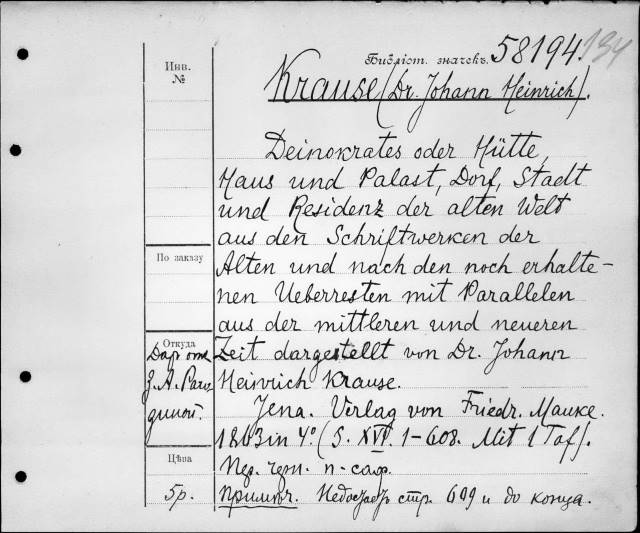 Инв.
№
Библіот. значекъ 58194.
134
Krause (Dr. Johann Heinrich).
Deinokrates oder Hütte,
Haus und Palast, Dorf, Stadt
und Residenz der alten Welt
aus den Schriftwerken der
По заказу
Alten und nach den noch erhalte-
nen Ueberresten mit Parallelen
aus der mittleren und neueren
Откуда
Даръ отъ
Zeit dargestellt von Dr. Johann
З. А. 
Heinrich Krause.
Jena. Verlag von Friedr. Mauke.
1863 in 4° (S. XVI. 1-608. Mit 1 Taf).
Цѣна
Пер. черн. п-саф.
5р.
Примѣч. Недостаетъ стр. 609 и до конца.